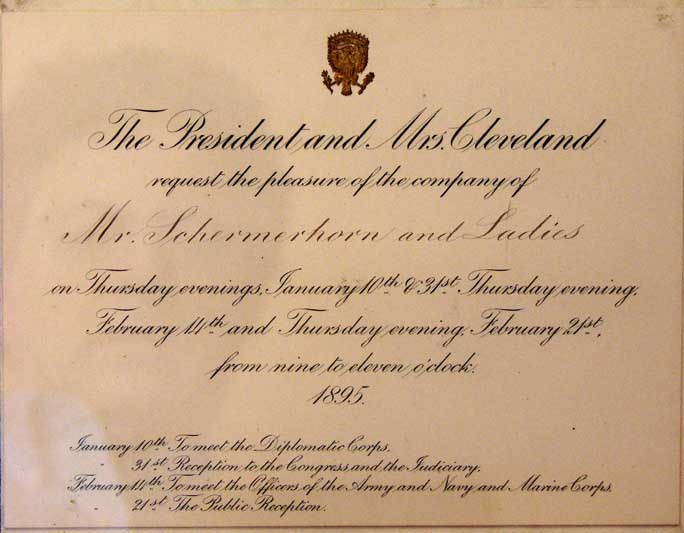 The President and Mrs. Cleveland
request the pleasure of the company of
Mr. Schermerhorn and Ladies
on Thursday evenings, January 10th & 31st Thursday evening,
February 14th and Thursday evening, February 21st,
from nine to eleven o'clock.
1895.
January 10th To meet the Diplomatic Corps.
31st Reception to the Congress and the Judiciary.
February 14th To meet the Officers of the Army and Navy and Marine Corps.
21st The Public Reception.